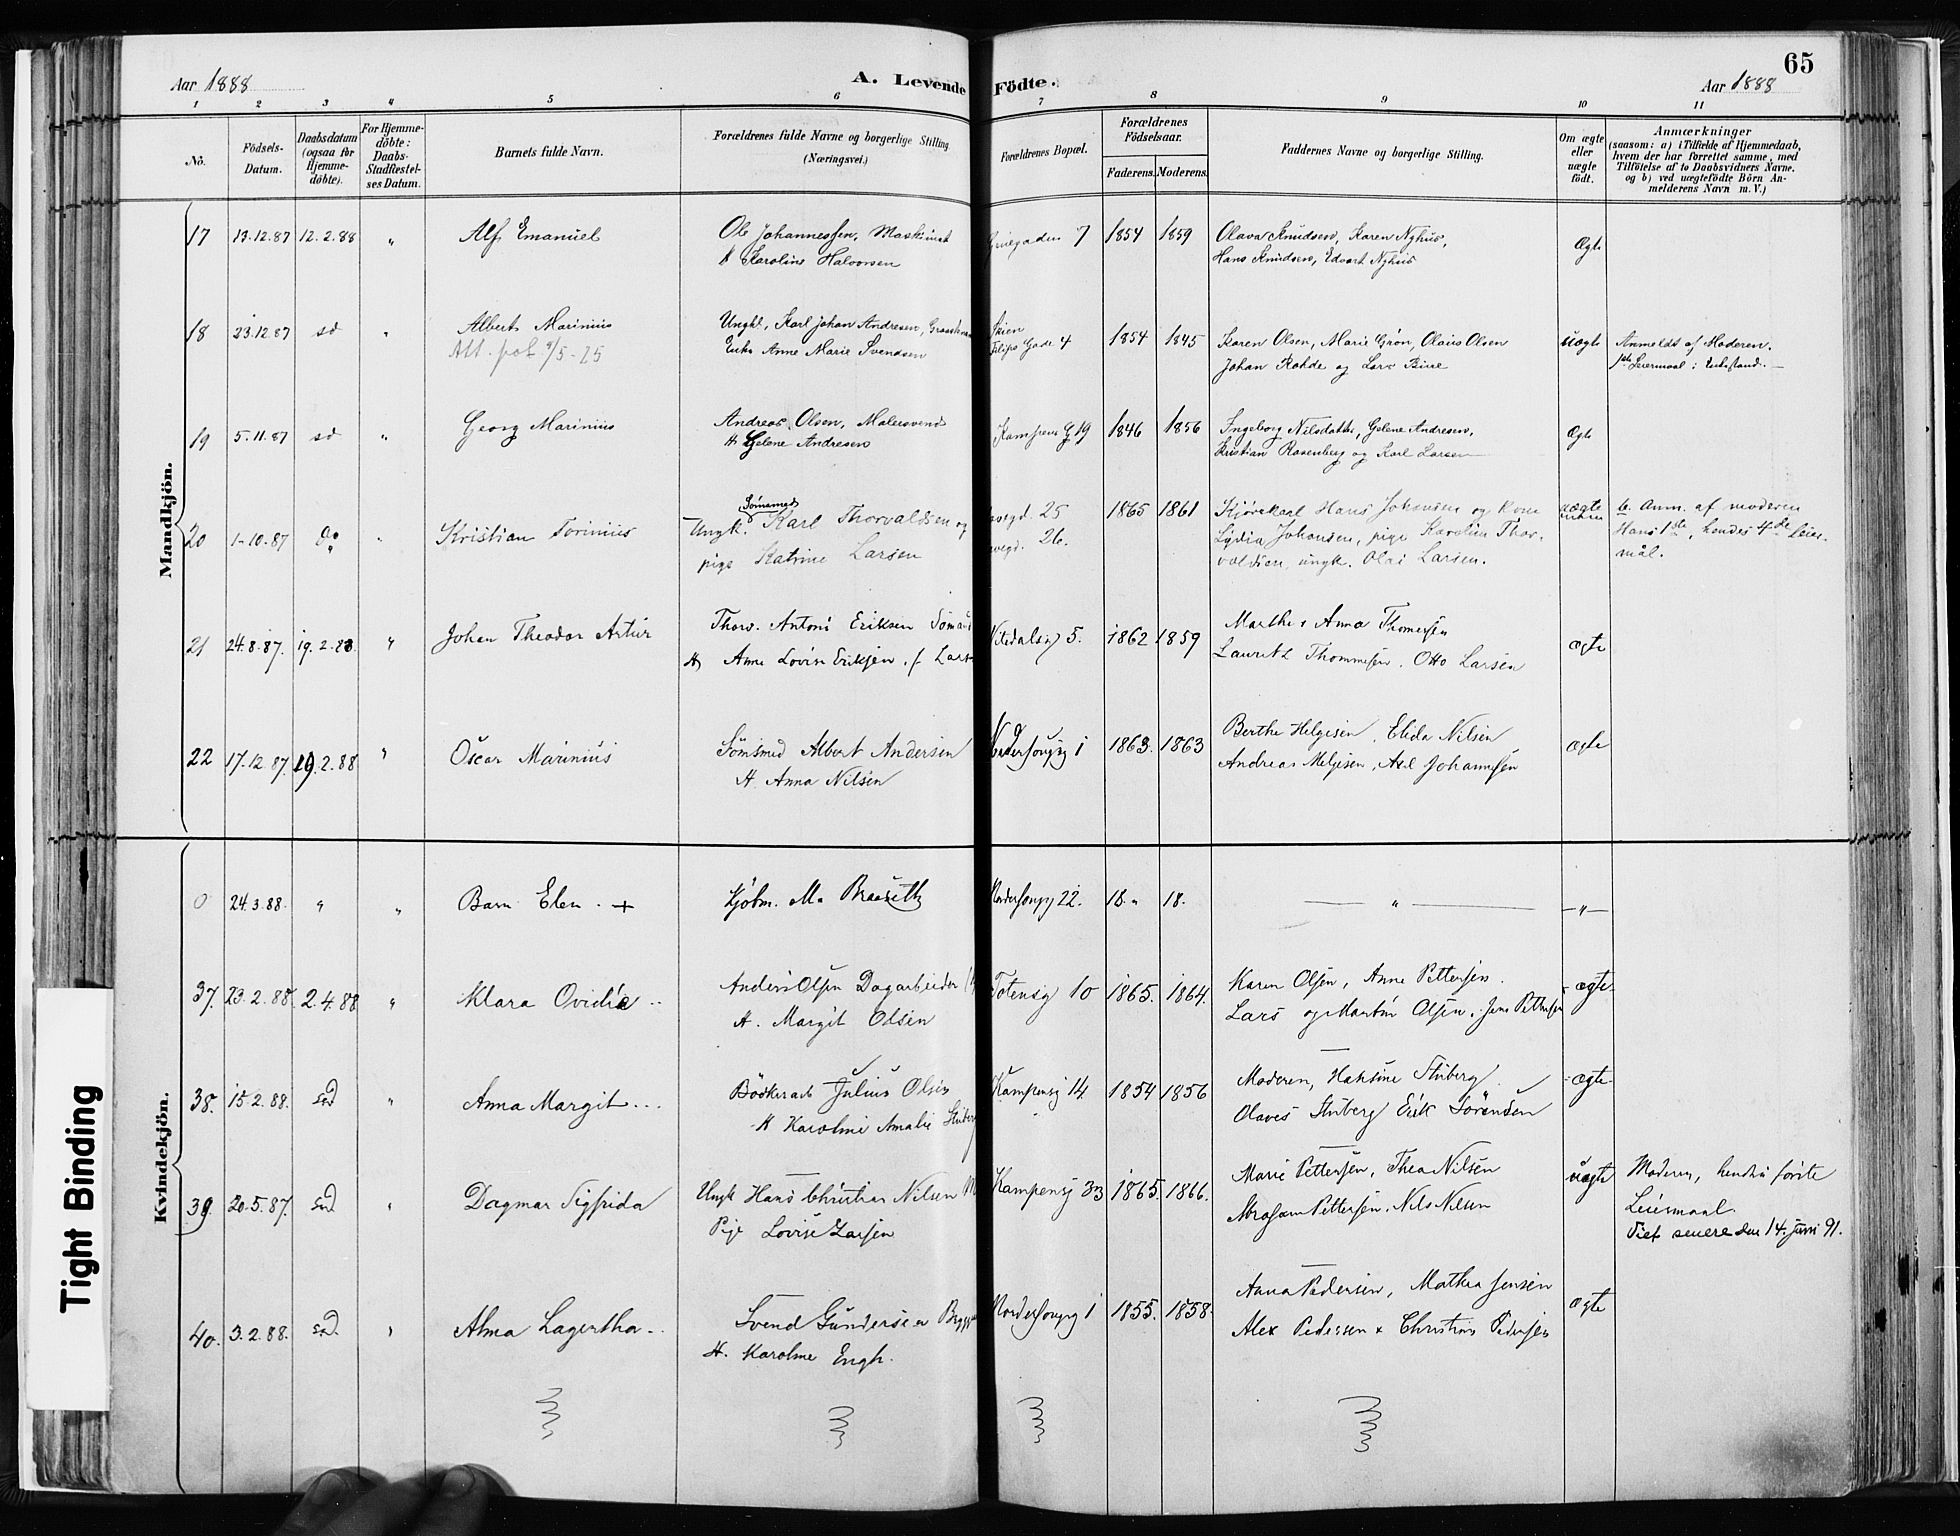 65
Aar 1888
A. Levende Födte.
Aar 1888
1 2 3 4 5 6 7 8 9 10 11
No.
Födsels-Datum.
Daabsdatum (ogsaa for Hjemmedöbte).
For Hjemmedöbte: Daabs-Stadfæstelses Datum.
Barnets fulde Navn.
Forældrenes fulde Navne og borgerlige Stilling (Næringsvei.)
Forældrenes Bopæl.
Forældrenes Födselsaar.
Faderens. Moderens.
Faddernes Navne og borgerlige Stilling.
Om ægte eller uægte födt.
Anmærkninger
(saasom: a) i Tilfælde af Hjemmedaab,
hvem der har forrettet samme, med
Tilföielse af to Daabsvidners Navne.
og b) ved uægtefödte Börn Anmelderens Navn m. V.)
Mandkjön.
17 13.12.87 12.2.88 " Alf Emanuel Ole Johannessen, Maskinist 7 1854 1859 Olava Knudsen, Karen Nyhus, Ægte
Karoline Halvorsen Hans Knudsen, Edvart Nyhus
18 23.12.87 sd " Albert Marinius Ungkl. Karl Johan Andresen, Skien 1854 1845 Karen Olsen, Marie Grøn, Olaus Olsen uægte Anmeldt af Moderen.
Att. pol 9/5-25 Enke Anne Marie Svendsen Filips Gade 4 Johan Rohde og Lars
19 5.11.87 sd " Georg Marinius Andreas Olsen, Malersvend 19 1846 1856 Ingeborg Nilsdatter, Gelene Andresen, Ægte
H Gelene Andresen Kristian Rosenberg og Karl Larsen
20 1-10.87 Do " Kristian Torinius Ungk. Sömsmed Karl Thorvaldsen og 25 1865 1861 Kjørekarl Hans Johansen og Kone uægte b. Anm. af moderen
pige Katrine Larsen 26. Lydia Johansen, pige Karoline Thorvaldsen, ungk. Olai Larsen. Hans 1ste, hendes 4de leiermål.
21 24.8.87. 19.2.88. " Johan Theodor Artur Thorv. Anton Eriksen 5. 1862 1859 Marthe & Anna Thomesen ægte
H Anne Lovise Eriksen f. Lars Lauritz Thommesen. Otto Larsen
22 17.12.87. 19.2.88 " Oscar Marinius Sömsmed Albert Andersen 1 1863. 1863 Berthe Helgesen, Elida Nilsen ægte
H. Anna Nilsen Andreas Helgesen, Axel Johannsen
Kvindekjön.
0 24.3.88. " " Barn Elen. + Kjöbm. M. 22. 18 " 18. " —"—
37. 23.2.88. 2.4.88 " Klara Ovidia Anders Olsen Dagarbeider Totensg 10 1865. 1864. Karen Olsen, Anne Pettersen. ægte
H. Margit Olsen Lars og Martin Olsen, Jens Pettersen
38. 15.2.88. sd " Anna Margit Bödkerarb Julius Olsen Kampensg 14 1854 1856 Moderen, Hansine Stiberg. ægte
H Karoline Amalie Stiberg Olaves Stiberg Erik Sörensen
39. 20.5.87. sd " Dagmar Sigfrida Ungk Hans Christian Nilsen Kampensg 33 1865. 1866. Marie Pettersen, Thea Nilsen uægte Moderen, hendes förste
Pige Lovise Larsen Abraham Pettersen, Nils Nilsen Leiermaal.
Viet senere den 14. juni 91.
40. 3.2.88. sd " Alma Lagertha Svend Gundersen 1 1855. 1858. Anna Pedersen, Mathea Jensen ægte
H. Karoline Engh. Alex Pedersen & Christian Pedersen
Tight Binding